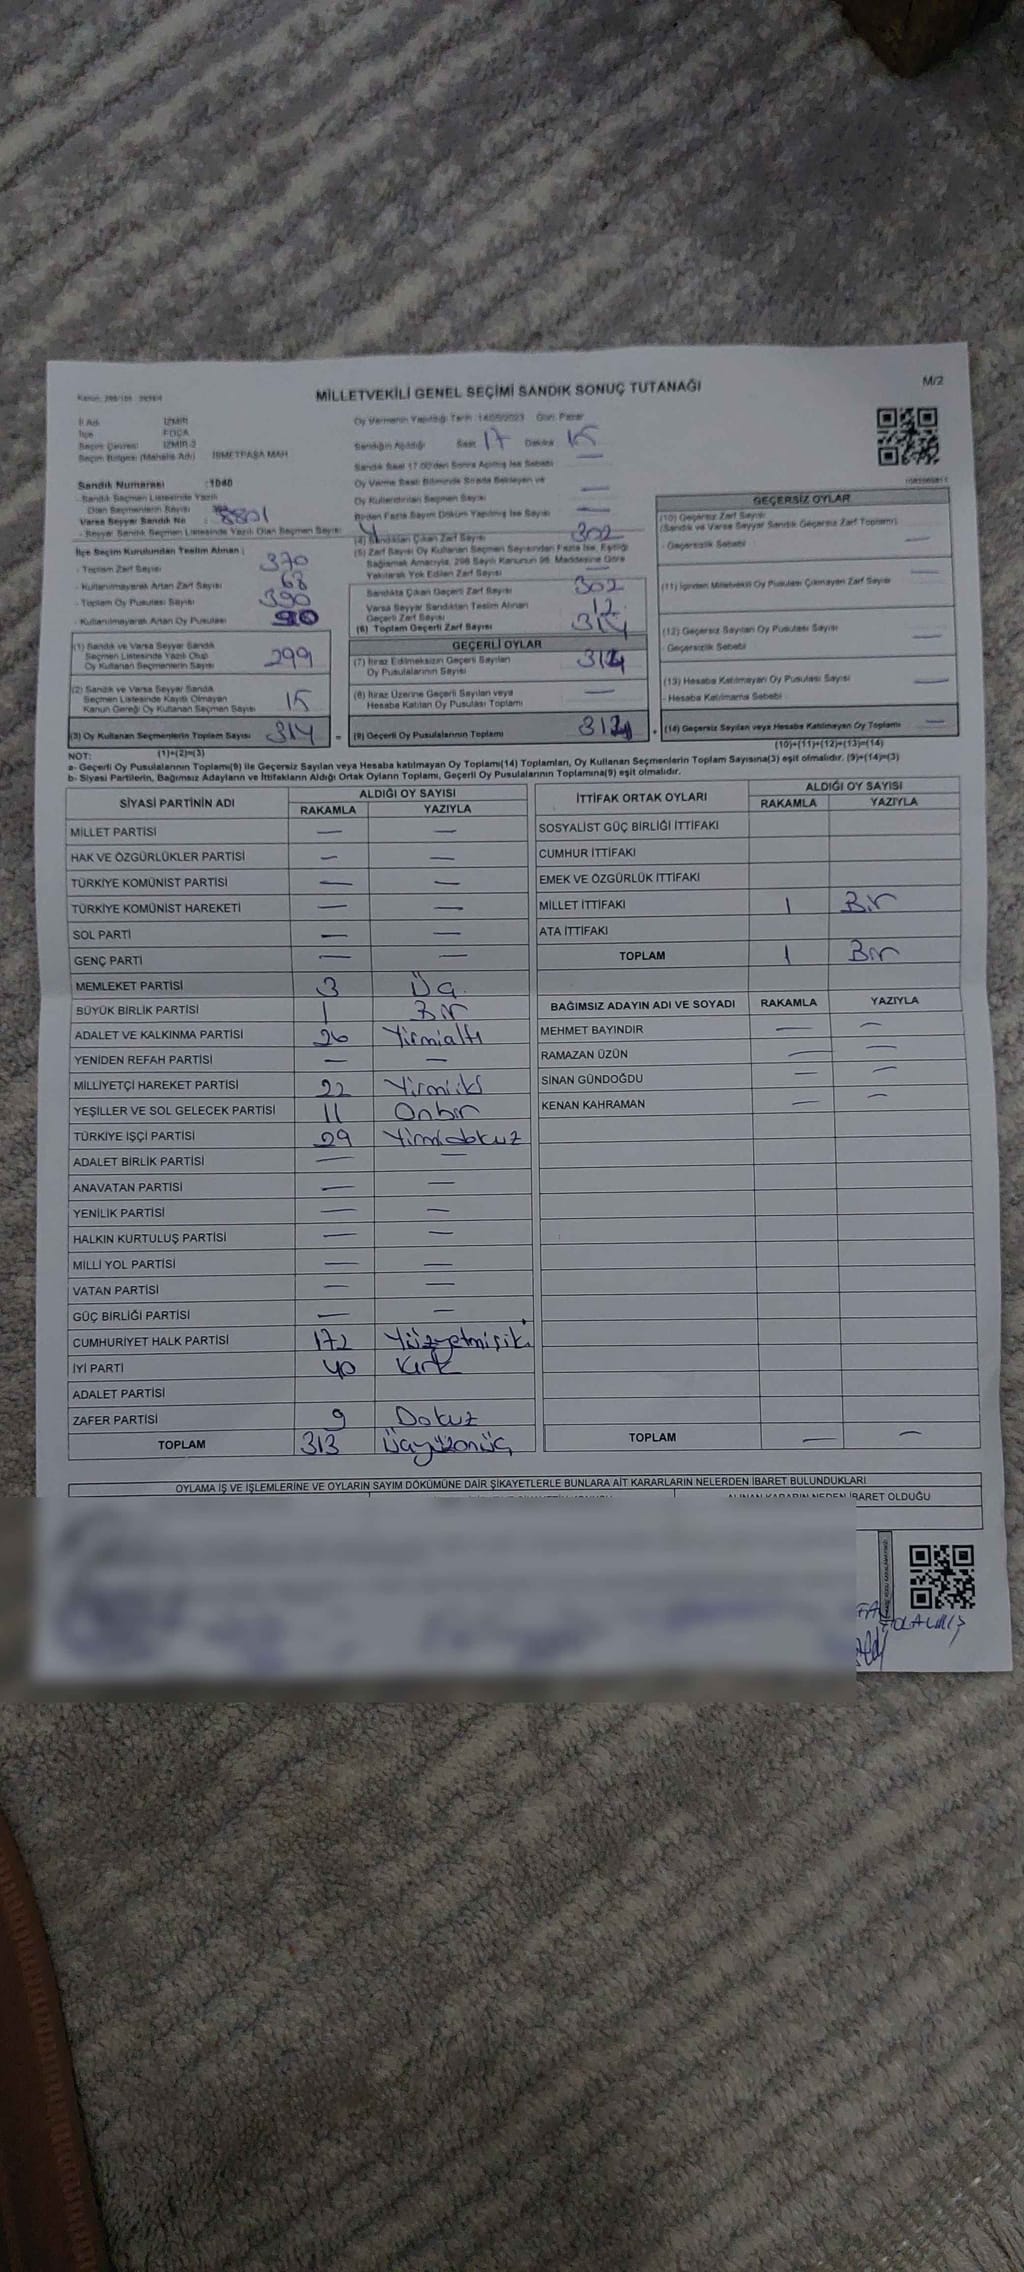 MİLLETVEKİLİ GENEL SEÇİMİ SANDIK SONUÇ TUTANAĞI
M/2
İl Adı İZMİR
İlçe FOÇA
Seçim Çevresi İZMİR-2
Seçim Bölgesi (Mahalle Adı) İSMETPAŞA MAH
Oy Vermenin Yapıldığı Tarih : 14/05/2023 Gün: Pazar
Sandığın Açıldığı Saat 17 Dakika 15
Sandık Saat 17.00'den Sonra Açılmış İse Sebebi —
Oy Verme Saati Bitiminde Sırada Bekleyen ve
Oy Kullandırılan Seçmen Sayısı —
Birden Fazla Sayım Döküm Yapılmış İse Sayısı —
Sandık Numarası : 1040
- Sandık Seçmen Listesinde Yazılı
Olan Seçmenlerin Sayısı
Varsa Seyyar Sandık No : 8801
- Seyyar Sandık Seçmen Listesinde Yazılı Olan Seçmen Sayısı
İlçe Seçim Kurulundan Teslim Alınan ;
- Toplam Zarf Sayısı 370
- Kullanılmayarak Artan Zarf Sayısı 68
- Toplam Oy Pusulası Sayısı 390
- Kullanılmayarak Artan Oy Pusulası
(4) Sandıktan Çıkan Zarf Sayısı 302
(5) Zarf Sayısı Oy Kullanan Seçmen Sayısından Fazla İse, Eşitliği
Sağlamak Amacıyla, 298 Sayılı Kanunun 98. Maddesine Göre
Yakılarak Yok Edilen Zarf Sayısı —
Sandıkta Çıkan Geçerli Zarf Sayısı 302
Varsa Seyyar Sandıktan Teslim Alınan
Geçerli Zarf Sayısı 12
(6) Toplam Geçerli Zarf Sayısı 314
(1) Sandık ve Varsa Seyyar Sandık
Seçmen Listesinde Yazılı Olup
Oy Kullanan Seçmenlerin Sayısı 299
(2) Sandık ve Varsa Seyyar Sandık
Seçmen Listesinde Kayıtlı Olmayan
Kanun Gereği Oy Kullanan Seçmen Sayısı 15
(3) Oy Kullanan Seçmenlerin Toplam Sayısı 314 =
(1)+(2)=(3)
GEÇERLİ OYLAR
(7) İtiraz Edilmeksizin Geçerli Sayılan
Oy Pusulalarının Sayısı 314
(8) İtiraz Üzerine Geçerli Sayılan veya
Hesaba Katılan Oy Pusulası Toplamı —
(9) Geçerli Oy Pusulalarının Toplamı 314 +
GEÇERSİZ OYLAR
(10) Geçersiz Zarf Sayısı
(Sandık ve Varsa Seyyar Sandık Geçersiz Zarf Toplamı)
- Geçersizlik Sebebi —
(11) İçinden Milletvekili Oy Pusulası Çıkmayan Zarf Sayısı —
(12) Geçersiz Sayılan Oy Pusulası Sayısı —
- Geçersizlik Sebebi
(13) Hesaba Katılmayan Oy Pusulası Sayısı —
- Hesaba Katılmama Sebebi
(14) Geçersiz Sayılan veya Hesaba Katılmayan Oy Toplamı —
(10)+(11)+(12)+(13)=(14)
NOT:
a- Geçerli Oy Pusulalarının Toplamı(9) ile Geçersiz Sayılan veya Hesaba katılmayan Oy Toplamı(14) Toplamları, Oy Kullanan Seçmenlerin Toplam Sayısına(3) eşit olmalıdır. (9)+(14)=(3)
b- Siyasi Partilerin, Bağımsız Adayların ve İttifakların Aldığı Ortak Oyların Toplamı, Geçerli Oy Pusulalarının Toplamına(9) eşit olmalıdır.
SİYASİ PARTİNİN ADI ALDIĞI OY SAYISI
RAKAMLA YAZIYLA
MİLLET PARTİSİ — —
HAK VE ÖZGÜRLÜKLER PARTİSİ — —
TÜRKİYE KOMÜNİST PARTİSİ — —
TÜRKİYE KOMÜNİST HAREKETİ — —
SOL PARTİ — —
GENÇ PARTİ — —
MEMLEKET PARTİSİ 3 Üç
BÜYÜK BİRLİK PARTİSİ 1 Bir
ADALET VE KALKINMA PARTİSİ 26 Yirmialtı
YENİDEN REFAH PARTİSİ — —
MİLLİYETÇİ HAREKET PARTİSİ 22 Yirmiiki
YEŞİLLER VE SOL GELECEK PARTİSİ 11 Onbir
TÜRKİYE İŞÇİ PARTİSİ 29 Yirmidokuz
ADALET BİRLİK PARTİSİ — —
ANAVATAN PARTİSİ — —
YENİLİK PARTİSİ — —
HALKIN KURTULUŞ PARTİSİ — —
MİLLİ YOL PARTİSİ — —
VATAN PARTİSİ — —
GÜÇ BİRLİĞİ PARTİSİ — —
CUMHURİYET HALK PARTİSİ 172 Yüzyetmişiki
İYİ PARTİ 40 Kırk
ADALET PARTİSİ
ZAFER PARTİSİ 9 Dokuz
TOPLAM 313 Üçyüzonüç
İTTİFAK ORTAK OYLARI ALDIĞI OY SAYISI
RAKAMLA YAZIYLA
SOSYALİST GÜÇ BİRLİĞİ İTTİFAKI
CUMHUR İTTİFAKI
EMEK VE ÖZGÜRLÜK İTTİFAKI
MİLLET İTTİFAKI 1 Bir
ATA İTTİFAKI
TOPLAM 1 Bir
BAĞIMSIZ ADAYIN ADI VE SOYADI RAKAMLA YAZIYLA
MEHMET BAYINDIR — —
RAMAZAN ÜZÜN — —
SİNAN GÜNDOĞDU — —
KENAN KAHRAMAN — —
TOPLAM — —
OYLAMA İŞ VE İŞLEMLERİNE VE OYLARIN SAYIM DÖKÜMÜNE DAİR ŞİKAYETLERLE BUNLARA AİT KARARLARIN NELERDEN İBARET BULUNDUKLARI
ALINAN KARARIN NEDEN İBARET OLDUĞU